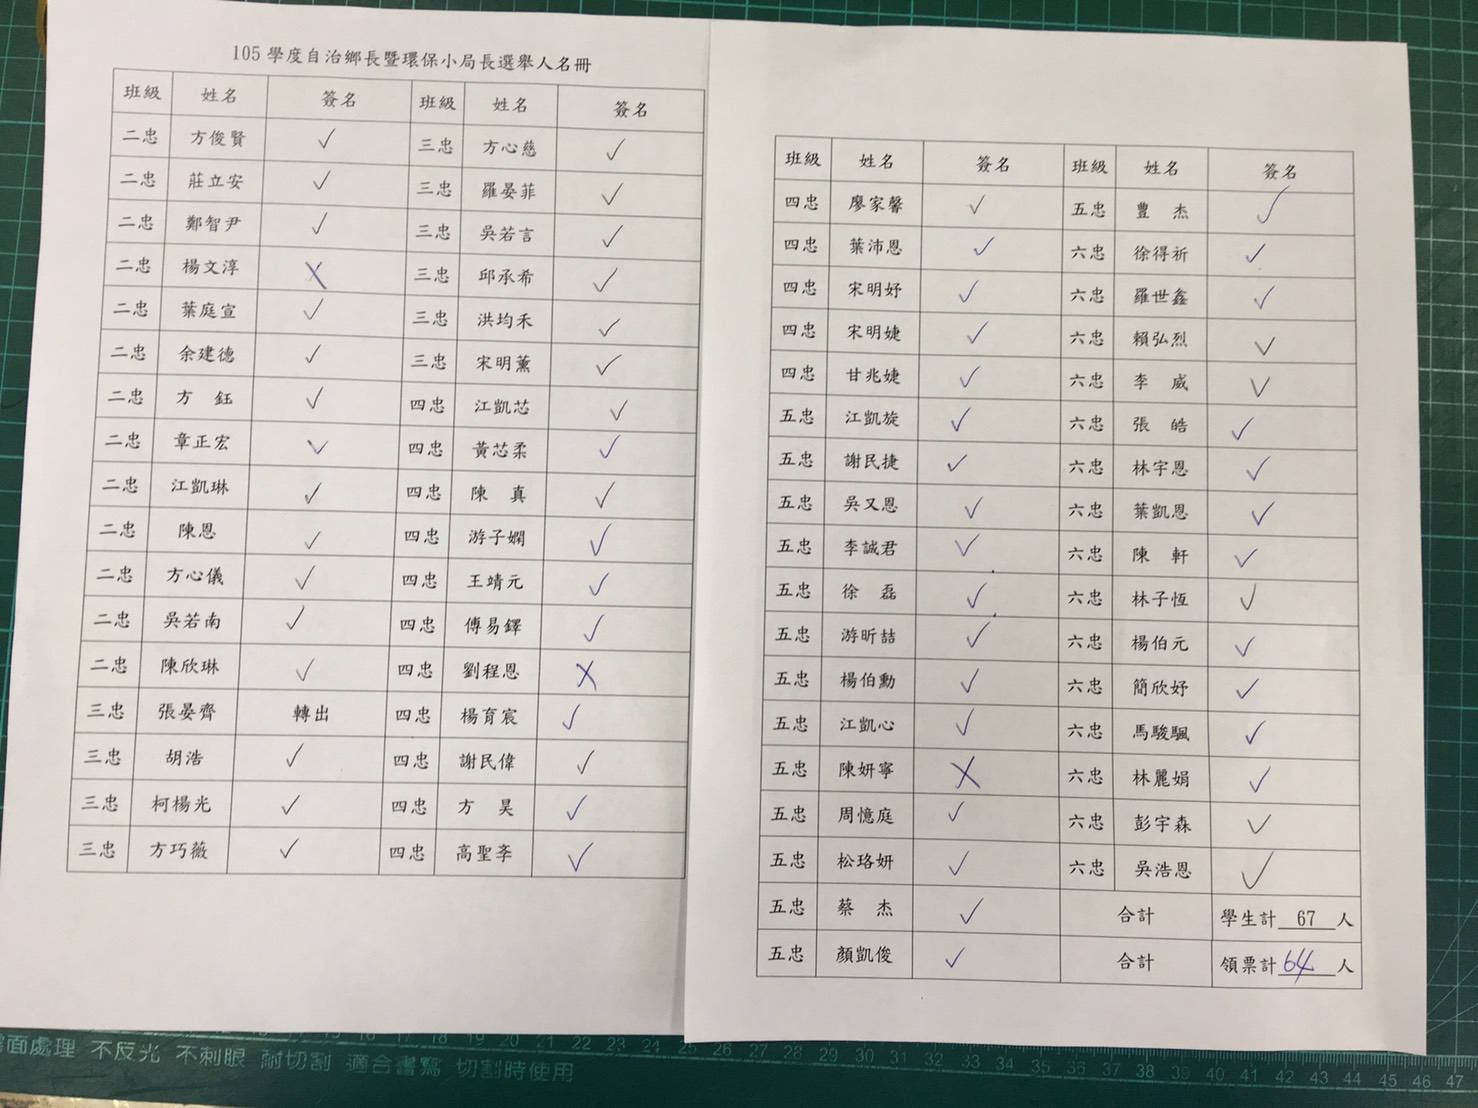 105 學度自治鄉長暨環保小局長選舉人名冊
班級 姓名 簽名 班級 姓名 簽名
二忠 方俊賢 ✓ 三忠 方心慈 ✓
二忠 莊立安 ✓ 三忠 羅晏菲 ✓
二忠 鄭智尹 ✓ 三忠 吳若言 ✓
二忠 楊文淳 X 三忠 邱承希 ✓
二忠 葉庭宣 ✓ 三忠 洪均禾 ✓
二忠 余建德 ✓ 三忠 宋明薰 ✓
二忠 方 鈺 ✓ 四忠 江凱芯 ✓
二忠 章正宏 ✓ 四忠 黃芯柔 ✓
二忠 江凱琳 ✓ 四忠 陳 真 ✓
二忠 陳恩 ✓ 四忠 游子嫻 ✓
二忠 方心儀 ✓ 四忠 王靖元 ✓
二忠 吳若南 ✓ 四忠 傅易鐸 ✓
二忠 陳欣琳 ✓ 四忠 劉程恩 X
三忠 張晏齊 轉出 四忠 楊育宸 ✓
三忠 胡浩 ✓ 四忠 謝民偉 ✓
三忠 柯楊光 ✓ 四忠 方 昊 ✓
三忠 方巧薇 ✓ 四忠 高聖 ✓
班級 姓名 簽名 班級 姓名 簽名
四忠 廖家馨 ✓ 五忠 豐 杰 ✓
四忠 葉沛恩 ✓ 六忠 徐得祈 ✓
四忠 宋明妤 ✓ 六忠 羅世鑫 ✓
四忠 宋明婕 ✓ 六忠 賴弘烈 ✓
四忠 甘兆婕 ✓ 六忠 李 威 ✓
五忠 江凱旋 ✓ 六忠 張 皓 ✓
五忠 謝民捷 ✓ 六忠 林宇恩 ✓
五忠 吳又恩 ✓ 六忠 葉凱恩 ✓
五忠 李誠君 ✓ 六忠 陳 軒 ✓
五忠 徐 磊 ✓ 六忠 林子恆 ✓
五忠 游昕喆 ✓ 六忠 楊伯元 ✓
五忠 楊伯勳 ✓ 六忠 簡欣妤 ✓
五忠 江凱心 ✓ 六忠 馬駿颿 ✓
五忠 陳妍寧 X 六忠 林麗娟 ✓
五忠 周憶庭 ✓ 六忠 彭宇森 ✓
五忠 松珞妍 ✓ 六忠 吳浩恩 ✓
五忠 蔡 杰 ✓ 合計 學生計 67 人
五忠 顏凱俊 ✓ 合計 領票計 64 人
面處理 不反光 不刺眼 耐切割 適合書寫 切割時使用